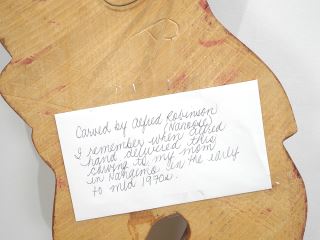 Carved by Alfred Robinson
(Nanoose)
I remember when Alfred
hand delivered this
carving to my mom
in Nanaimo in the early
to mid 1970s.